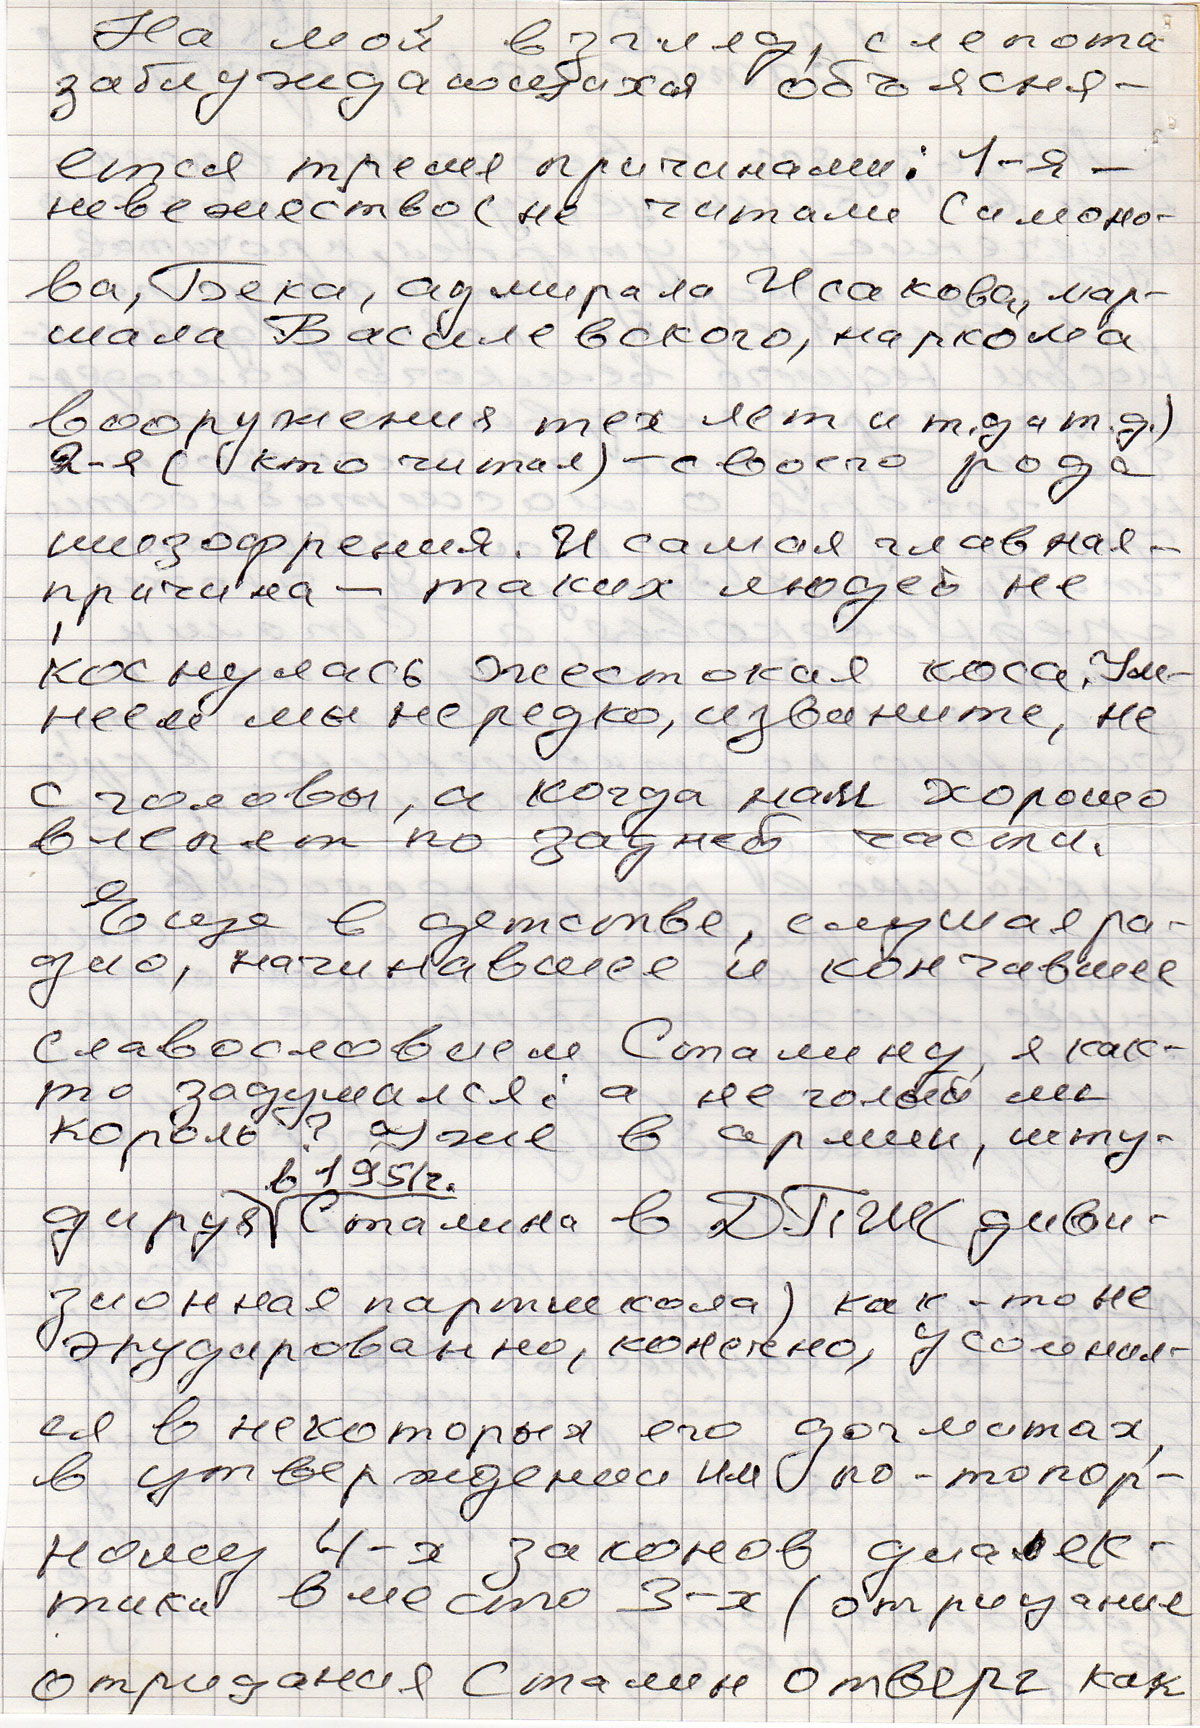 На мой взгляд, слепота
заблуждающихся объясня-
ется тремя причинами: 1-я —
невежество (не читали Симоно-
ва, Бека, адмирала Исакова, мар-
шала Василевского, наркома
вооружения тех лет и т.д. и т.д.)
2-я (кто читал) — своего рода
шизофрения. И самая главная —
причина — таких людей не
коснулась жестокая коса. Ум-
неем мы нередко, извините, не
с головы, а когда нам хорошо
влепят по задней части.
Еще в детстве, слушая ра-
дио, начинавшее и кончавшее
славословием Сталину, я как-
то задумался: а не голый ли
король? Уже в армии, шту-
в 1951г.
дируя Сталина в ДПШ (диви-
зионная партшкола) как-то не
эрудированно, конечно, усомнил-
ся в некоторых его догматах,
в утверждении им по-топор-
ному 4-х законов диалек-
тики вместо 3-х (отрицание
отрицания Сталин отверг как